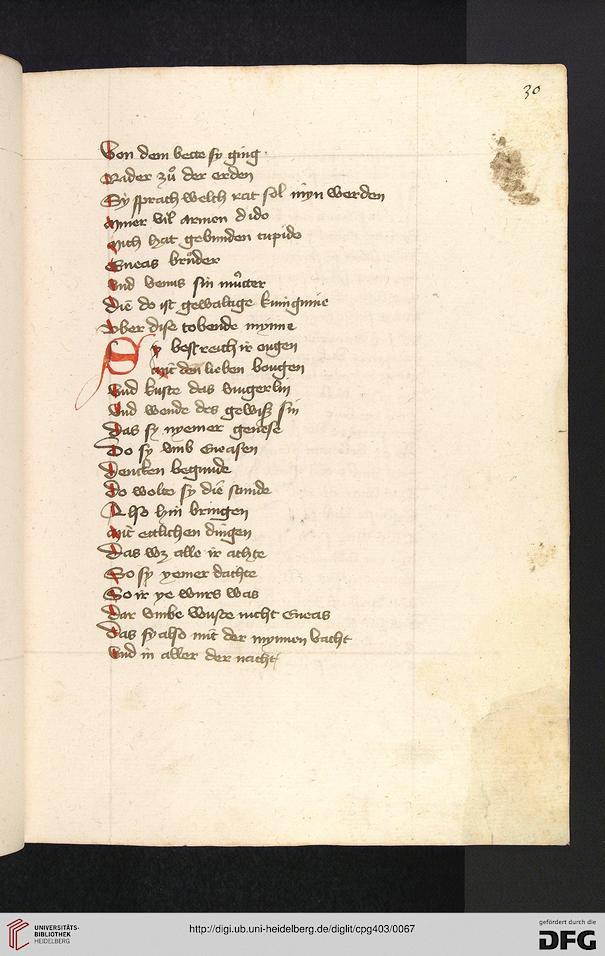 30
Von dem bette sy ging
Nider zuͦ der erden
Sy sprach welch rat sol myn werden
Ymer vil armen dido
Mich hat gebunden cupido
Eneas bruͦder
Vnd venus sin muͦtter
Die do ist gewaltige kuniginne
Vber dise tobende mynne
Sy bestreich ir ougen
Mit den lieben bougen
Vnd kuste das vingerlin
Vnd wende des gewiß sin
Das sy nyemer genese
Do sy vmb Eneasen
Dencken begunde
Do wolte sy die stunde
Also hin bringen
Mit ettlichen dingen
Das wz alle ir achte
So sy yemer dachte
So ir ye wurs was
Dar vmbe wuste nicht Eneas
Das sy also mit der mynnen vacht
Vnd in aller der nacht
UNIVERSITÄTS-
BIBLIOTHEK
HEIDELBERG
http://digi.ub.uni-heidelberg.de/diglit/cpg403/0067
gefördert durch die
DFG